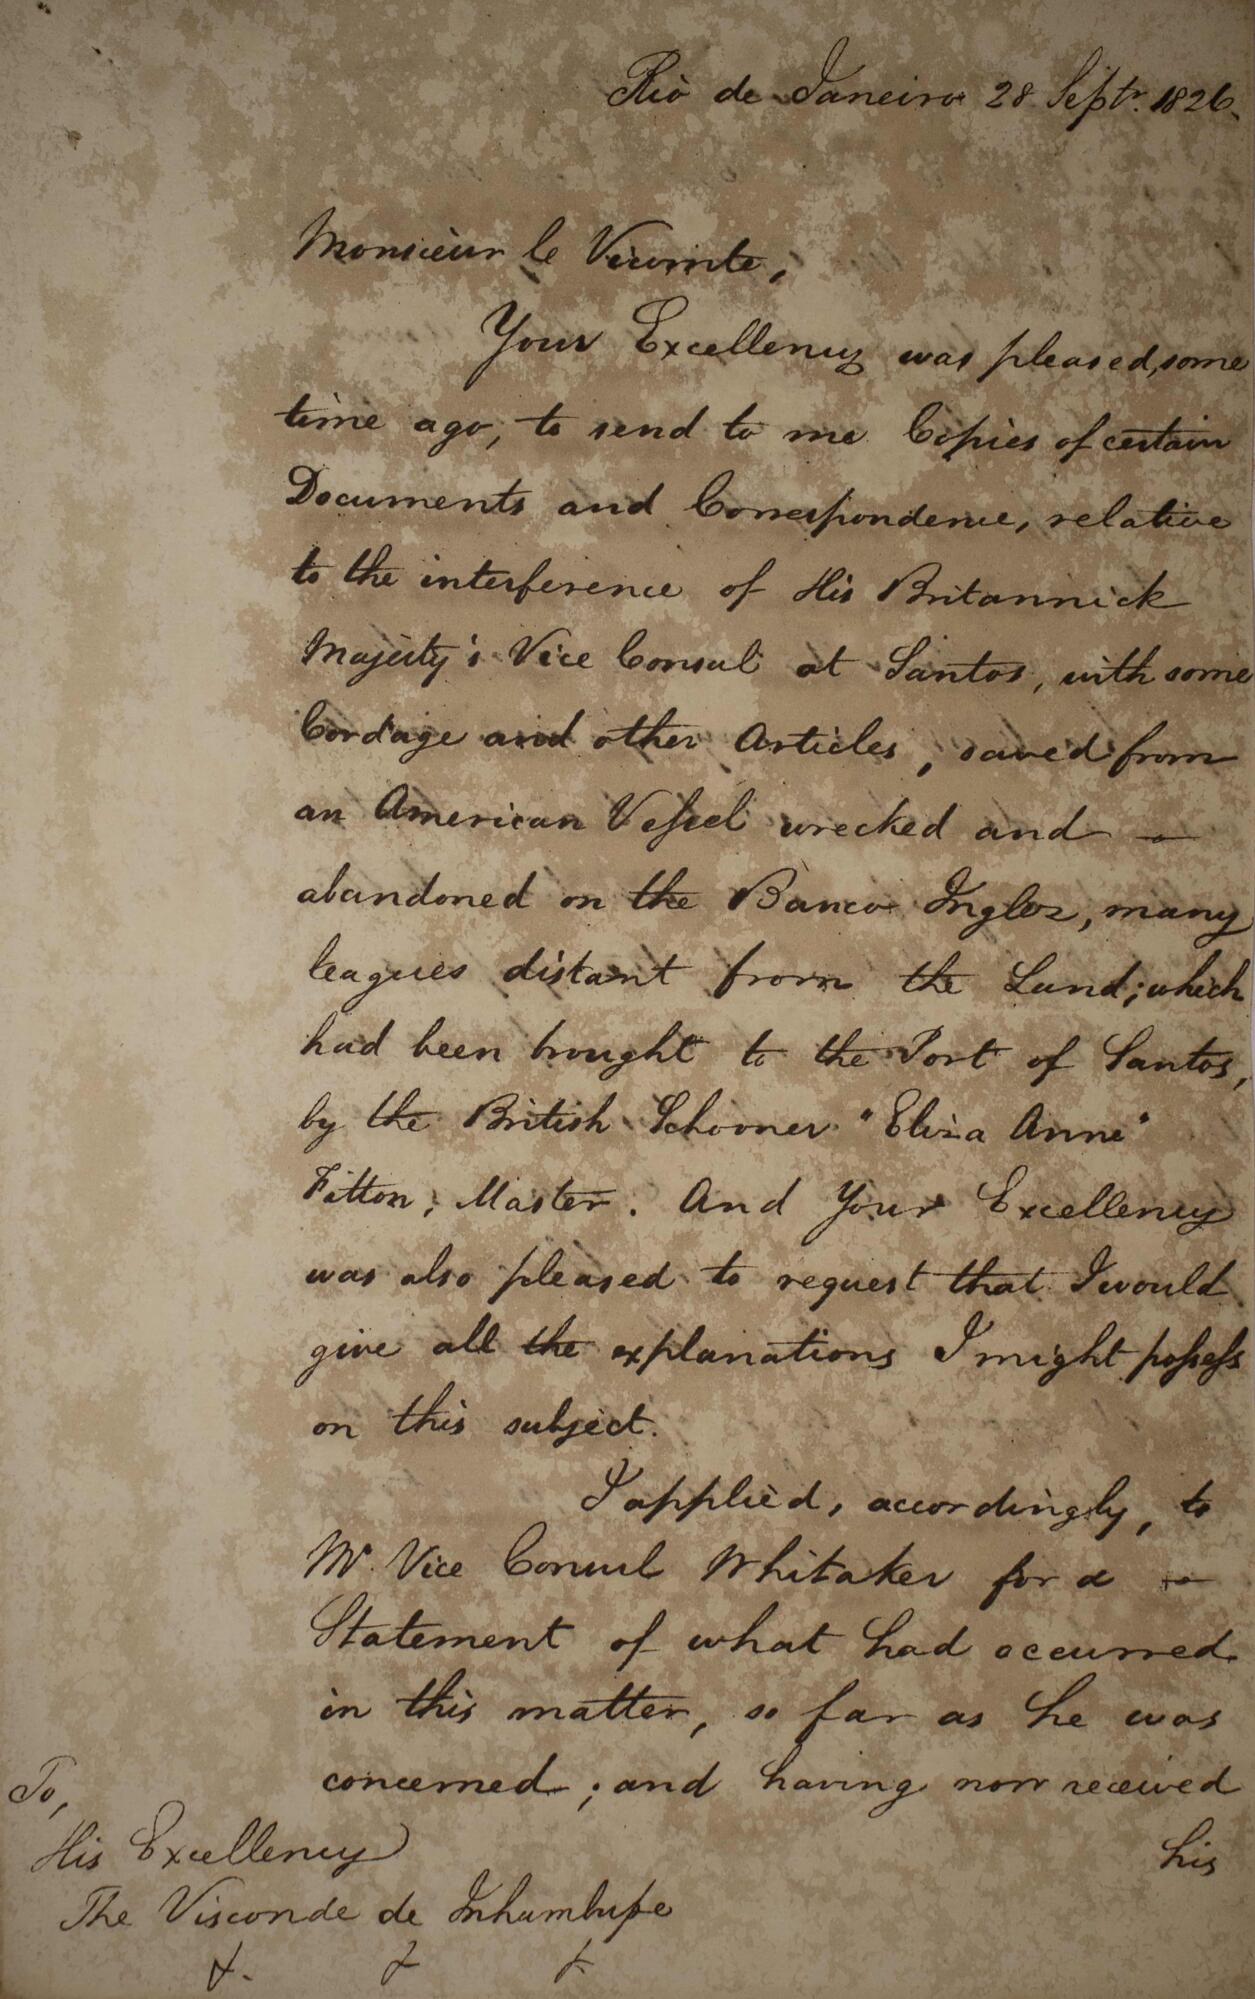 Rio de Janeiro 28 Septr. 1826.
Monsieur le Vicomte,
Your Excellency was pleased, some
time ago, to send to me Copies of certain
Documents and Correspondence, relative
to the interference of His Britannick
Majesty's Vice Consul at Santos, with some
Cordage and other Articles, saved from
an American Vessel wrecked and —
abandoned on the Banco Inglez, many
leagues distant from the Land; which
had been brought to the Port of Santos,
by the British Schooner "Eliza Anne"
Fitton, Master. And Your Excellency
was also pleased to request that I would
give all the explanations I might possess
on this subject.
I applied, accordingly, to
Mr. Vice Consul Whitaker for a —
Statement of what had occurred
in this matter, so far as he was
concerned; and having now received
his
To,
His Excellency
The Visconde de Inhambupe
&. & &.